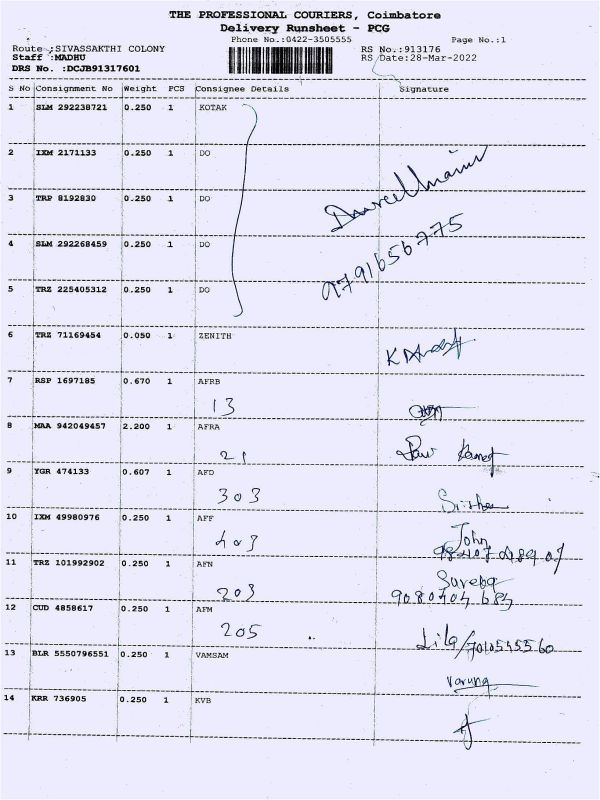 THE PROFESSIONAL COURIERS, Coimbatore
Delivery Runsheet - PCG
Phone No.:0422-3505555 Page No.:1
Route :SIVASSAKTHI COLONY RS No.:913176
Staff :MADHU RS Date:28-Mar-2022
DRS No. :DCJB91317601
S No Consignment No Weight PCS Consignee Details Signature
1 SLM 292238721 0.250 1 KOTAK
2 IXM 2171133 0.250 1 DO
3 TRP 8192830 0.250 1 DO
4 SLM 292268459 0.250 1 DO
9791656775
5 TRZ 225405312 0.250 1 DO
6 TRZ 71169454 0.050 1 ZENITH
7 RSP 1697185 0.670 1 AFRB
13
8 MAA 942049457 2.200 1 AFRA
21
9 YGR 474133 0.607 1 AFD
303
10 IXM 49980976 0.250 1 AFF
403 John
11 TRZ 101992902 0.250 1 AFN
203
12 CUD 4858617 0.250 1 AFM
205 Lila/7010545560
13 BLR 5550796551 0.250 1 VAMSAM
Varuna
14 KRR 736905 0.250 1 KVB